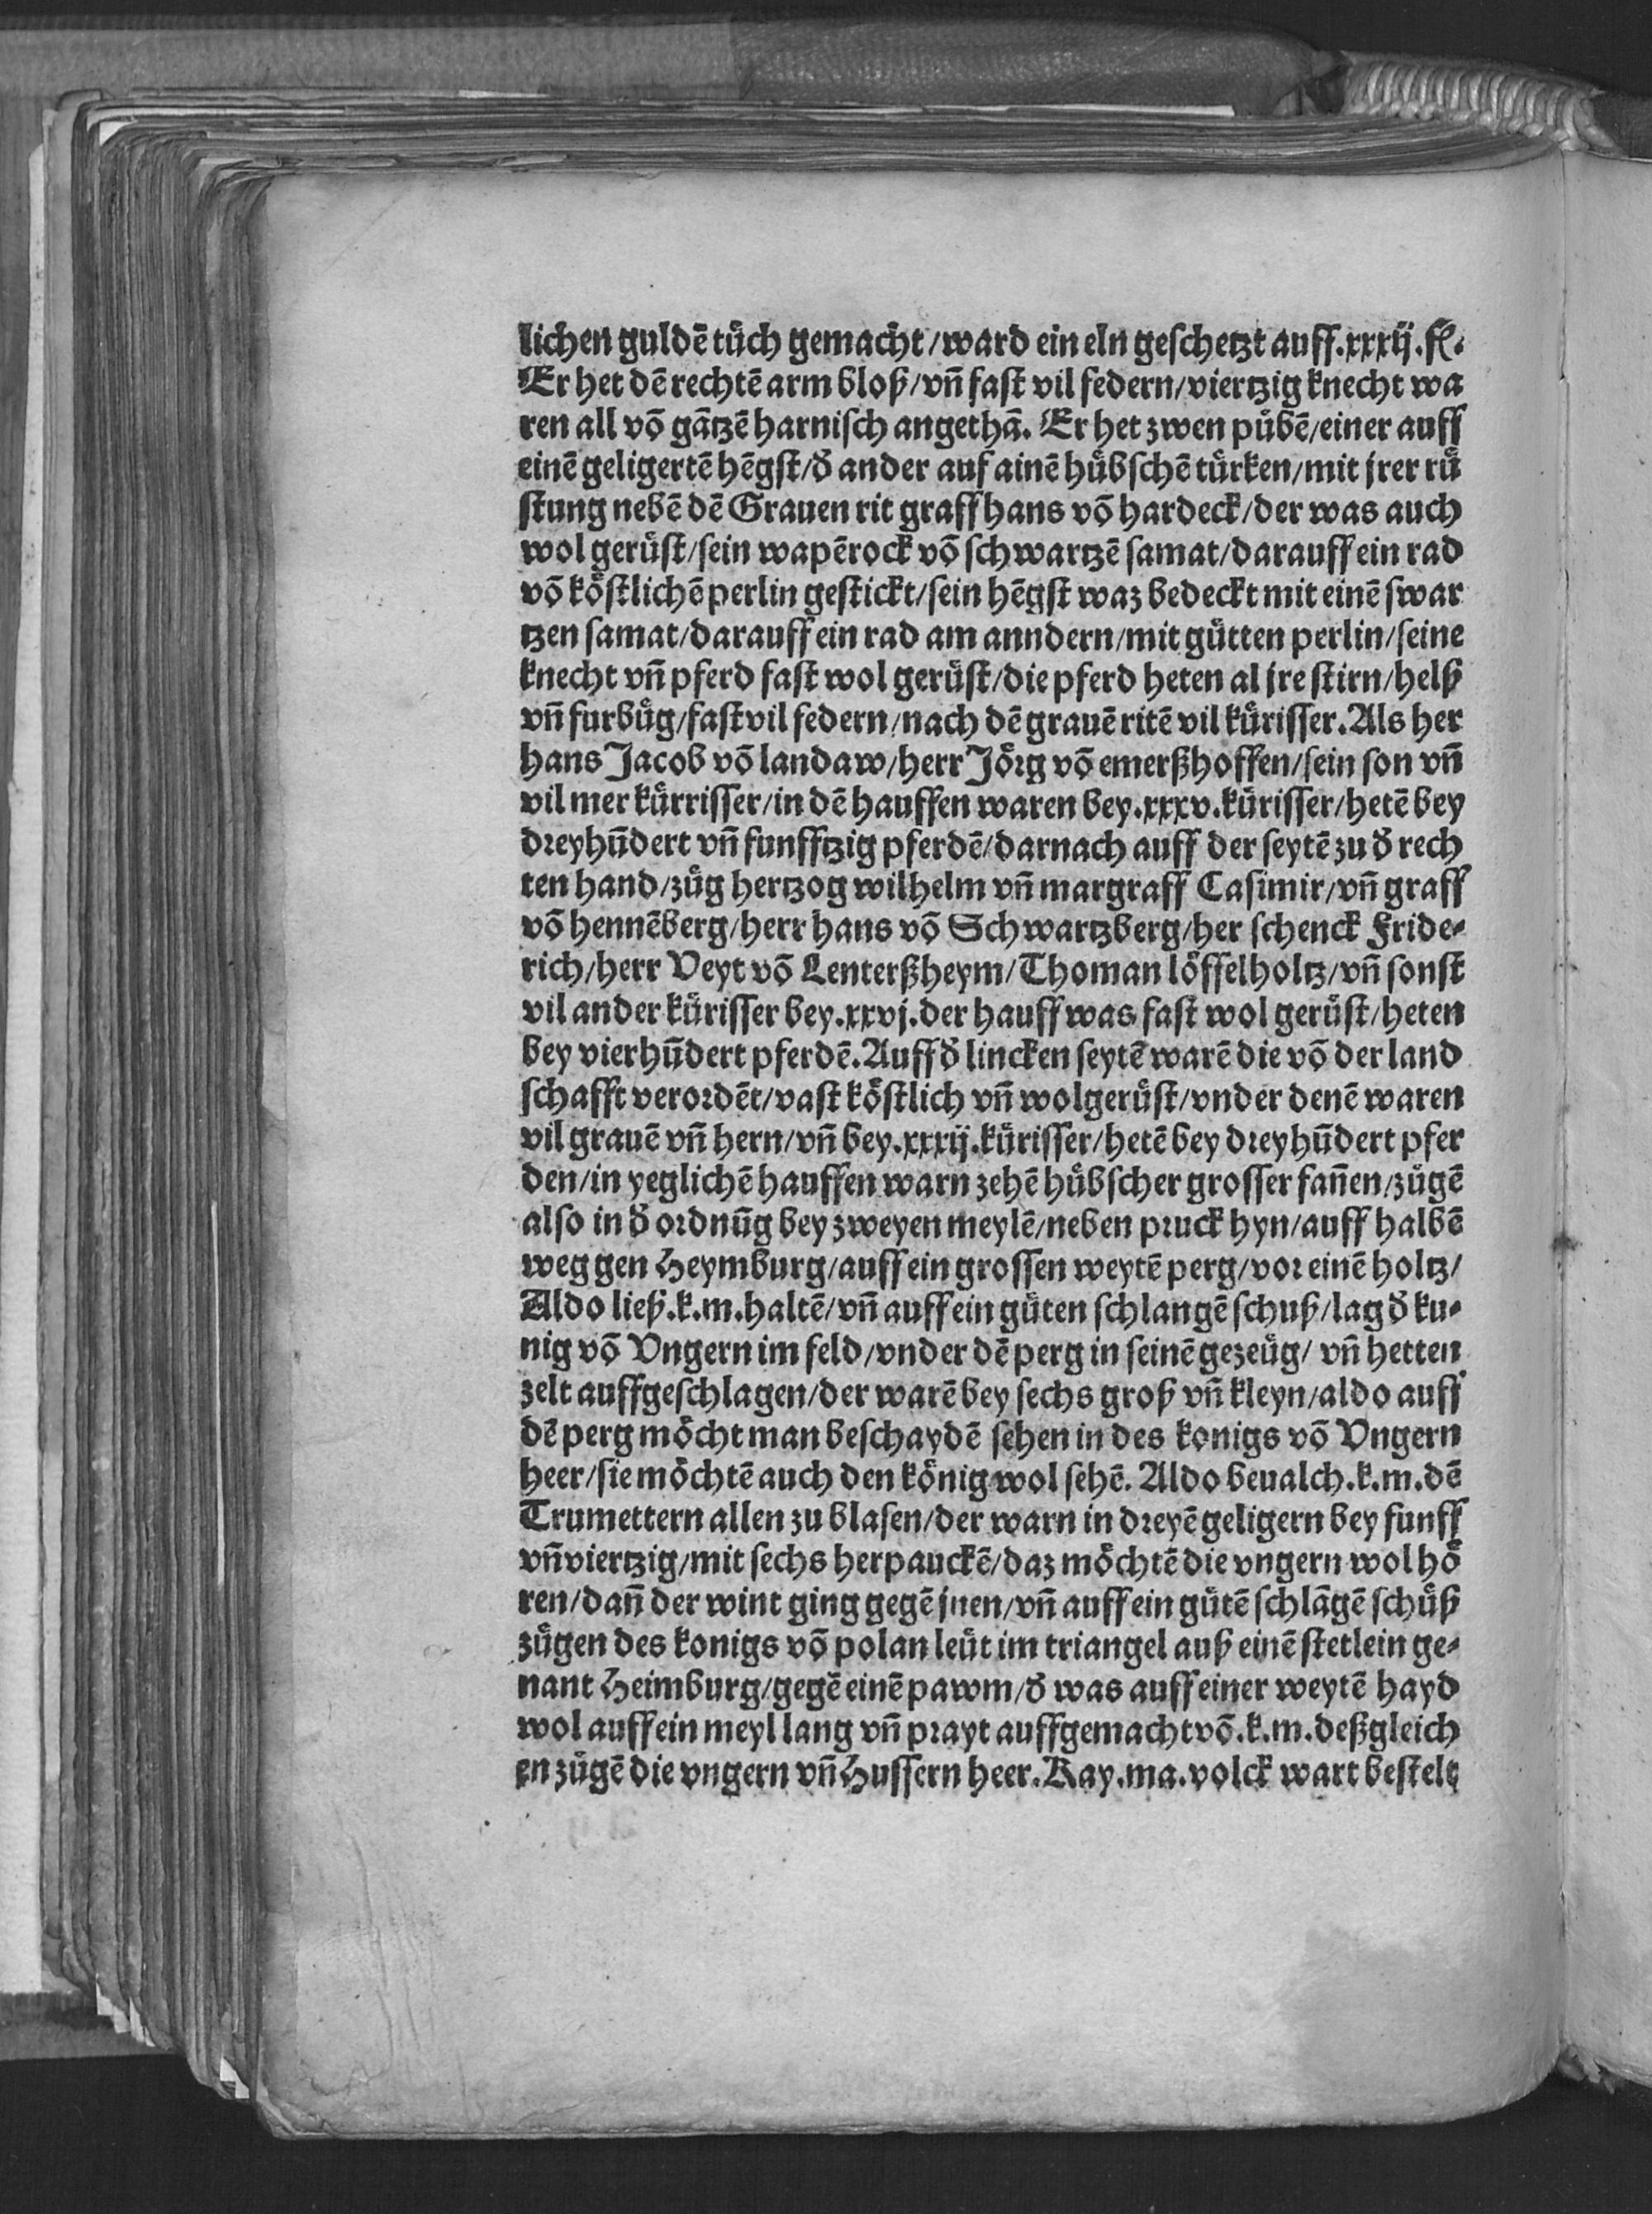 lichen guldē tůch gemacht/ward ein eln geschetzt auff.xxxij.fl.
Er het dē rechtē arm bloß/vñ fast vil federn/viertzig knecht wa
ren all võ gātzē harnisch angethā. Er het zwen půbē/einer auff
einē geligertē hēgst/d̕ ander auf ainē hübschē türken/mit jrer rü
stung nebē dē Grauen rit graff hans võ hardeck/der was auch
wol gerüst/sein wapērock võ schwartzē samat/darauff ein rad
võ köstlichē perlin gestickt/sein hēgst waz bedeckt mit einē swar
tzen samat/darauff ein rad am anndern/mit gůtten perlin/seine
knecht vñ pferd fast wol gerüst/die pferd heten al jre stirn/helß
vñ furbüg/fast vil federn/nach dē grauē ritē vil kürisser. Als her
hans Jacob võ landaw/herr Jörg võ emerßhoffen/sein son vñ
vil mer kürrisser/in dē hauffen waren bey.xxxv.kürisser/hetē bey
dreyhūdert vñ funfftzig pferdē/darnach auff der seytē zu d̕ rech
ten hand/zůg hertzog wilhelm vñ margraff Casimir/vñ graff
võ hennēberg/herr hans võ Schwartzberg/her schenck Fride⸗
rich/herr Veyt võ Lenterßheym/Thoman löffelholtz/vñ sonst
vil ander kürisser bey.xxvj.der hauff was fast wol gerüst/heten
bey vierhūdert pferdē. Auff d̕ lincken seytē warē die võ der land
schafft verordēt/vast köstlich vñ wolgerüst/vnder denē waren
vil grauē vñ hern/vñ bey.xxxij.kürisser/hetē bey dreyhūdert pfer
den/in yeglichē hauffen warn zehē hübscher grosser fañen/zůgē
also in d̕ ordnūg bey zweyen meylē/neben pruck hyn/auff halbē
weg gen Heymburg/auff ein grossen weytē perg/vor einē holtz/
Aldo ließ.k.m.haltē/vñ auff ein gůten schlangē schuß/lag d̕ ku⸗
nig võ Vngern im feld/vnder dē perg in seinē gezeüg/ vñ hetten
zelt auffgeschlagen/der warē bey sechs groß vñ kleyn/aldo auff
dē perg möcht man beschaydē sehen in des konigs võ Vngern
heer/sie möchtē auch den könig wol sehē. Aldo beualch.k.m.dē
Trumettern allen zu blasen/der warn in dreyē geligern bey funff
vñ viertzig/mit sechs herpauckē/daz möchtē die vngern wol hö
ren/dañ der wint ging gegē jnen/vñ auff ein gůtē schlāgē schůß
zůgen des konigs võ polan leüt im triangel auß einē stetlein ge⸗
nant Heimburg/gegē einē pawm/d̕ was auff einer weytē hayd
wol auff ein meyl lang vñ prayt auffgemacht võ.k.m.deßgleich
en zůgē die vngern vñ Hussern heer. Kay.ma.volck wart bestelt